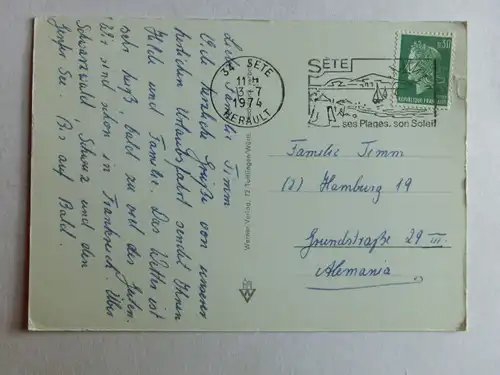 Liebe Familie Timm
Viele herzliche Grüße von unserer
herrlichen Urlaubsfahrt sendet Ihnen
Hilde und Familie. Das Wetter ist
sehr heiß, bald zu viel des Guten.
Wir sind schon in Frankreich über
Schwarzwald, Schweiz und den
Genfer See. Bis auf
Bald.
34 SETE
11H
13-7
1974
HERAULT
SÈTE
ses Plages, son Soleil
0,30
REPUBLIQUE FRANÇAISE
Werner-Verlag, 72 Tuttlingen/Württ.
Familie Timm
(2) Hamburg 19
Grundstraße 29 III.
Alemania